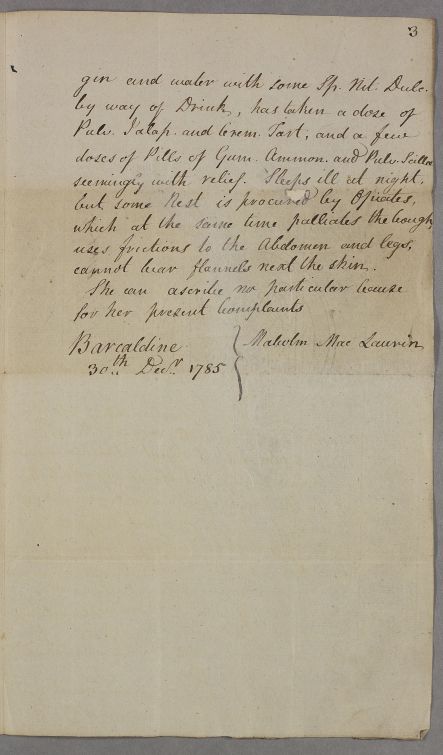 3
gin and water with some Sp. Nit. Dulc.
by way of Drink, has taken a dose of
Pulv. Jalap. and Crem. Tart, and a few
doses of Pills of Gum. Ammon. and Pulv. Scillæ
seemingly with relief. Sleeps ill at night,
but some Rest is procured by Opiates,
which at the same time palliates the Cough,
uses frictions to the Abdomen and legs,
cannot bear flannels next the skin.
She can ascribe no particular Cause
for her present Complaints
Barcaldine } Malcolm Mac Laurin
30th Decr. 1785